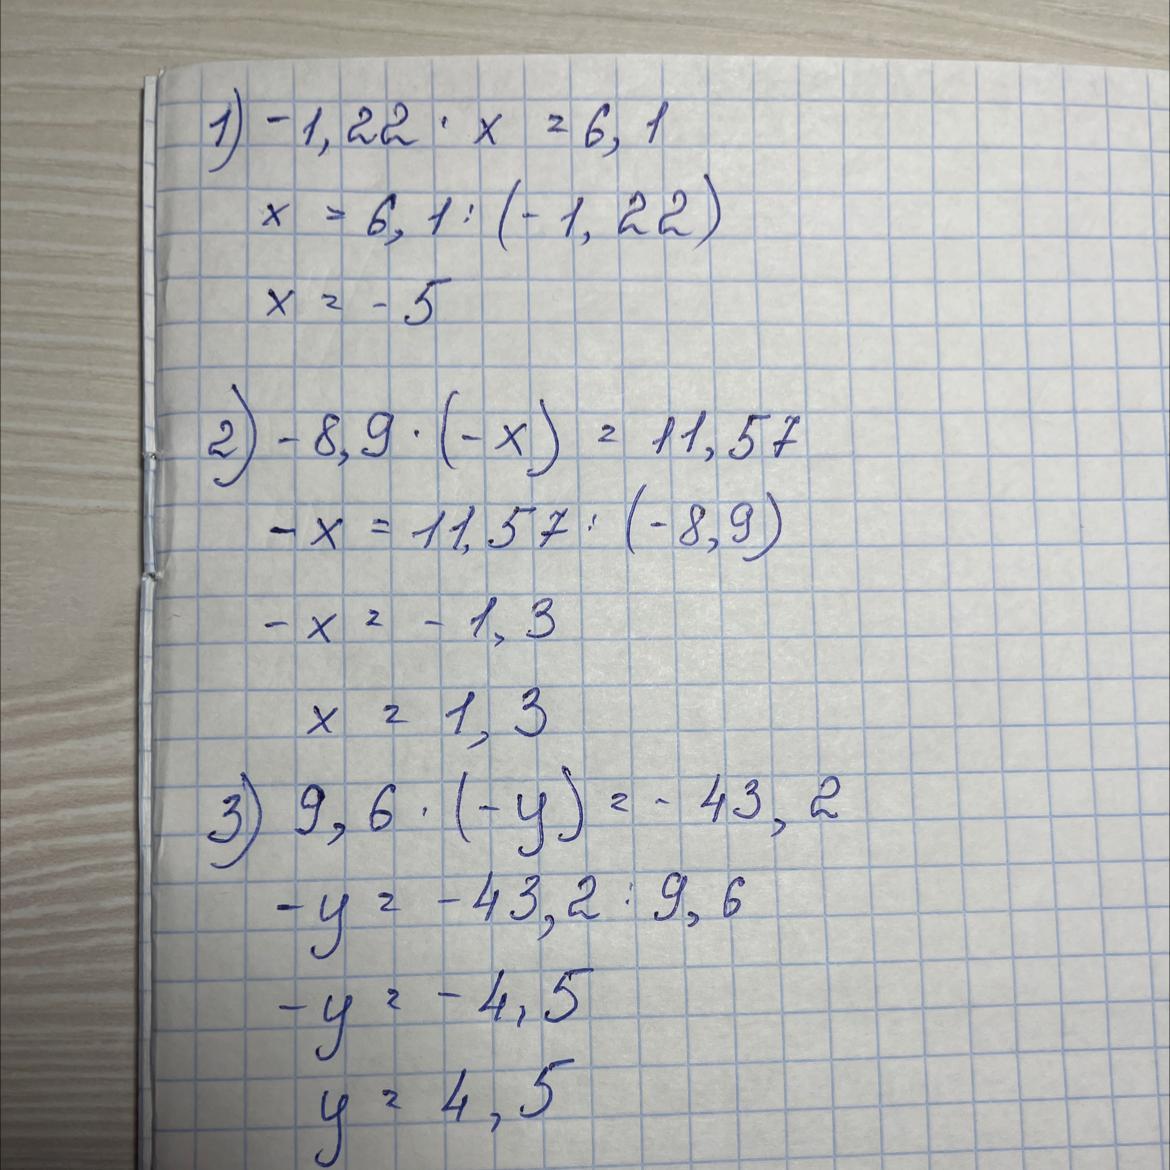 1) -1,22 · x = 6,1
x = 6,1 : (-1,22)
x = -5
2) -8,9 · (-x) = 11,57
-x = 11,57 : (-8,9)
-x = -1,3
x = 1,3
3) 9,6 · (-y) = -43,2
-y = -43,2 : 9,6
-y = -4,5
y = 4,5